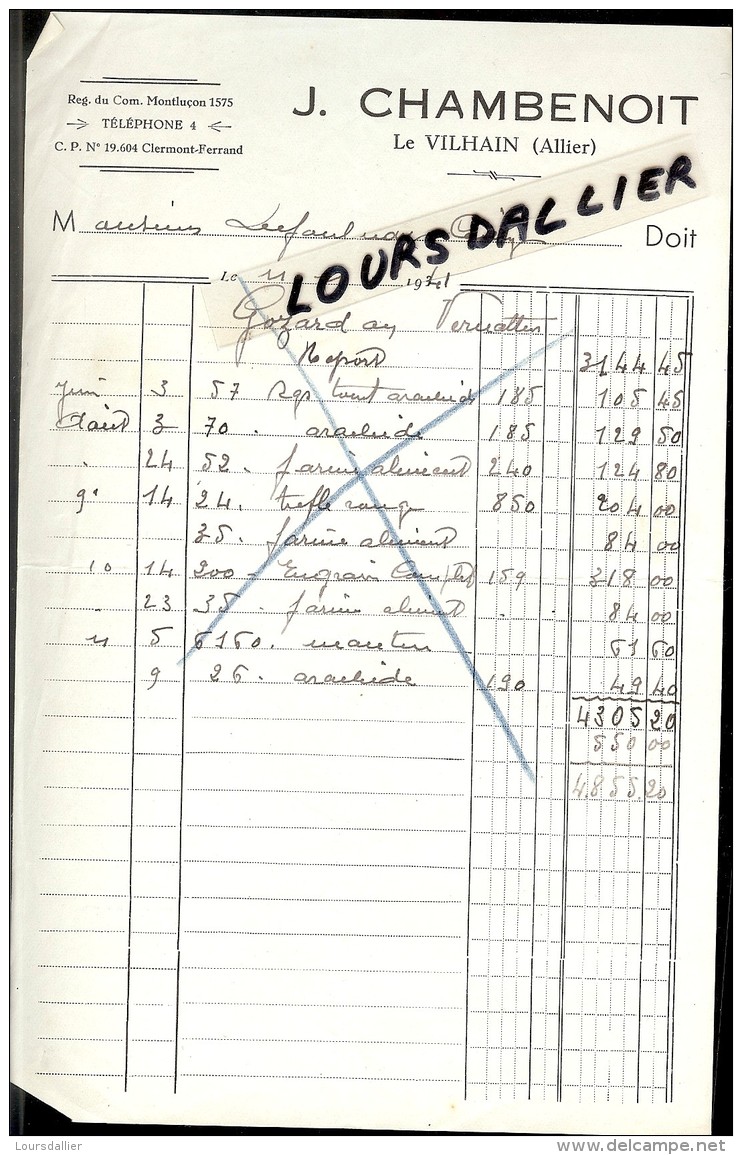 Reg. du Com. Montluçon 1575
TÉLÉPHONE 4
C. P. N° 19.604 Clermont-Ferrand
J. CHAMBENOIT
Le VILHAIN (Allier)
M Doit
LOURSDALLIER
Le 11 1941
Gozard
Report 3144 45
Juin 3 57 Kgs arachide 185 105 45
Aout 3 70 . arachide 185 129 50
. 24 52 . farine aliment 240 124 80
9. 14 24 . trefle 850 204 00
35 . farine aliment 84 00
10 14 200 - Engrais Complet 159 318 00
. 23 35 . farine aliment . . 84 00
11 5 6160 . 61 60
9 26 . arachide 190 49 40
4305 20
550 00
4855 20
Loursdallier
www.delcampe.net